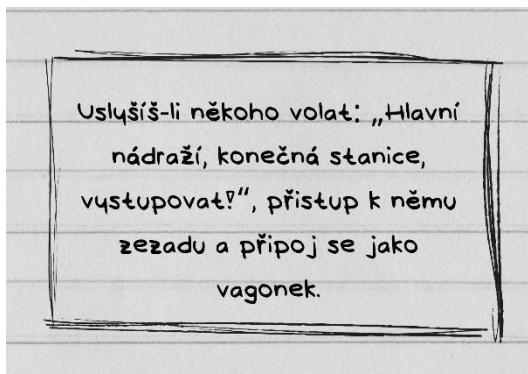 Uslyšíš-li někoho volat: „Hlavní
nádraží, konečná stanice,
vystupovat!“, přistup k němu
zezadu a připoj se jako
vagonek.